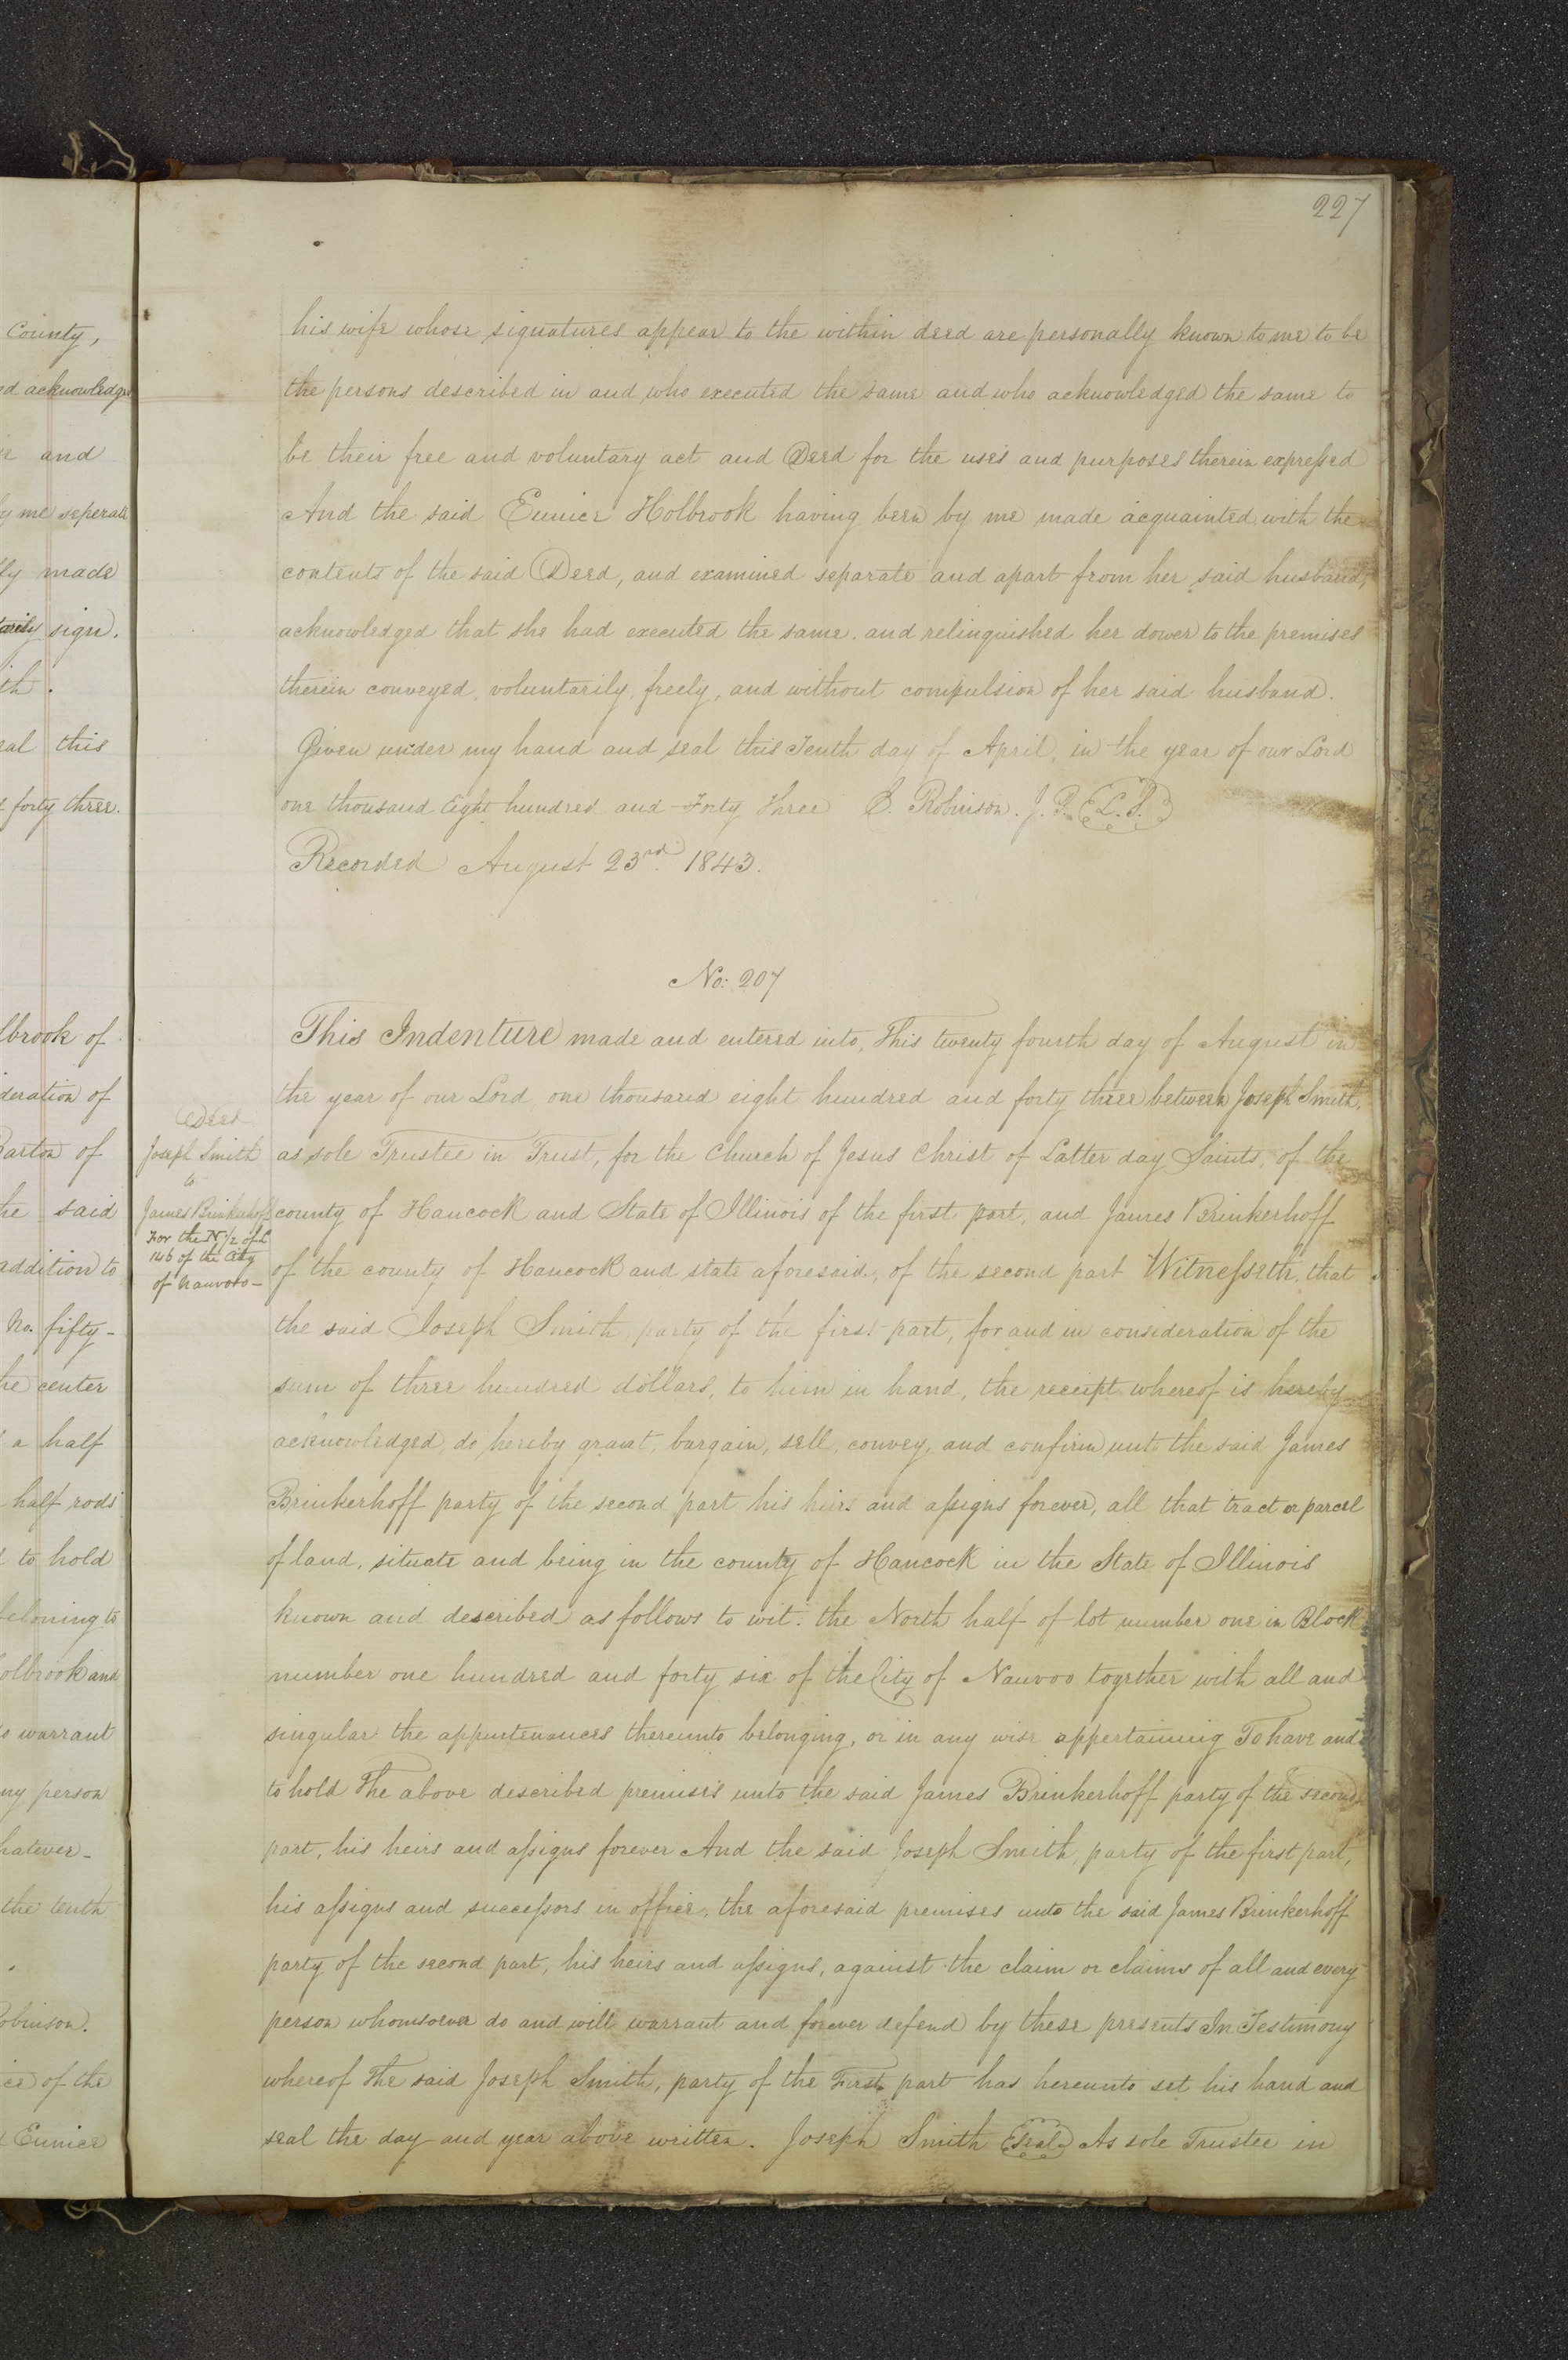 227
County,
d acknowledge
and
y me seperate
ly made
tarily sign.
ith.
eal this
forty three.
lbrook of
deration of
Barton of
he said
addition to
No. fifty-
he center
a half
half rods
to hold
beloning to
olbrook and
o warrant
ny person
hatever-
the tenth
Robinson.
ce of the
Eunice
his wife whose signatures appear to the within deed are personally known to me to be
the persons described in and who executed the same and who acknowledged the same to
be their free and voluntary act and Deed for the uses and purposes therein expressed
And the said Eunice Holbrook having been by me made acquainted with the
contents of the said Deed, and examined separate and apart from her said husband,
acknowledged that she had executed the same, and relinquished her dower to the premises
therein conveyed, voluntarily, freely, and without compulsion of her said husband.
Given under my hand and seal this Tenth day of April, in the year of our Lord
one thousand Eight hundred and Forty Three E. Robinson. J. P. L.S.
Recorded August 23rd. 1843.
No: 207
Deed
Joseph Smith
to
James Brinkerhoff
For the N 1/2 of L
146 of the City
of Nauvoo-
This Indenture made and entered into, This twenty fourth day of August in
the year of our Lord one thousand eight hundred and forty three between Joseph Smith,
as sole Trustee in Trust, for the Church of Jesus Christ of Latter day Saints, of the
county of Hancock and State of Illinois of the first part, and James Brinkerhoff
of the county of Hancock and state aforesaid, of the second part Witnesseth, that
the said Joseph Smith, party of the first part, for and in consideration of the
sum of three hundred dollars, to him in hand, the receipt whereof is hereby
acknowledged, do hereby grant, bargain, sell, convey, and confirm unto the said James
Brinkerhoff party of the second part his heirs and assigns forever, all that tract or parcel
of land, situate and being in the county of Hancock in the State of Illinois
known and described as follows to wit: the North half of lot number one in Block
number one hundred and forty six of the City of Nauvoo together with all and
singular the appurtenances thereunto belonging, or in any wise appertaining To have and
to hold The above described premises unto the said James Brinkerhoff party of the second
part, his heirs and assigns forever And the said Joseph Smith, party of the first part,
his assigns and successors in office, the aforesaid premises unto the said James Brinkerhoff
party of the second part, his heirs and assigns, against the claim or claims of all and every
person whomsoever do and will warrant and forever defend by these presents In Testimony
whereof The said Joseph Smith, party of the First part has hereunto set his hand and
seal the day and year above written. Joseph Smith Seal As sole Trustee in